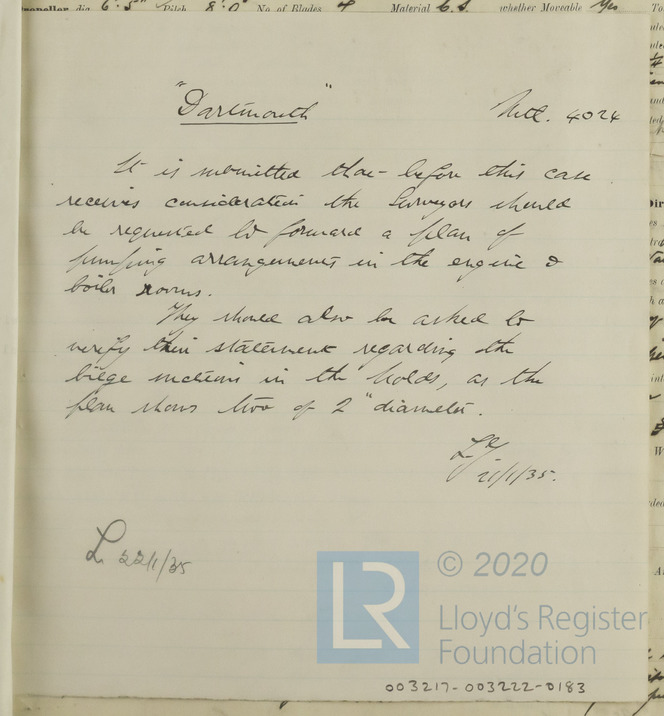 Propeller dia 6'.5" Pitch 8'.0" No. of Blades 4 Material C.I. whether Moveable Yes
"Dartmouth" Mtl. 4024
It is submitted that before this case
receives consideration the Surveyors should
be requested to forward a plan of
pumping arrangements in the engine &
boiler rooms.
They should also be asked to
verify their statement regarding the
bilge suctions in the holds, as the
plan shows two of 2" diameter.
21/1/35.
L 22/1/35
LR
© 2020
Lloyd's Register
Foundation
003217-003222-0183